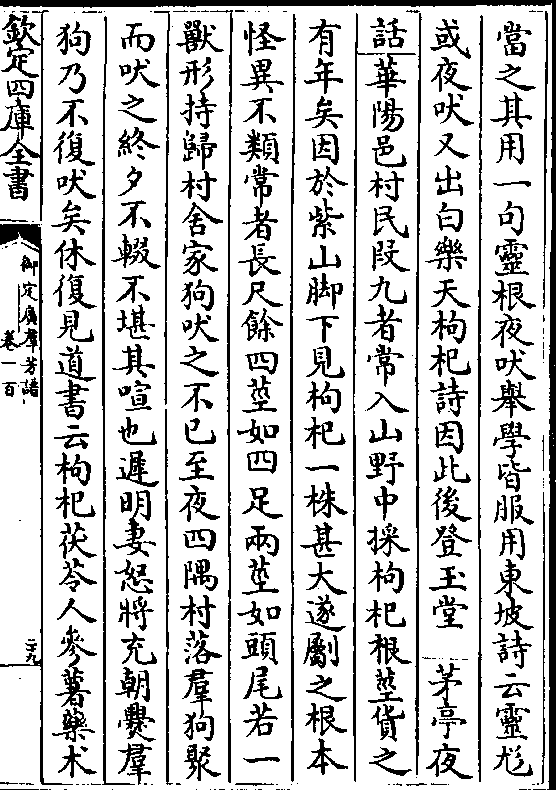 當之其用一句靈根夜吠舉學皆服用東坡詩云靈尨
或夜吠又出白樂天枸杞詩因此後登玉堂　茅亭夜
話華陽邑村民段九者常入山野中採枸杞根莖貨之
有年矣因於紫山脚下見枸杞一株甚大遂劚之根本
怪異不類常者長尺餘四莖如四足兩莖如頭尾若一
獸形持歸村舍家狗吠之不已至夜四隅村落羣狗聚
而吠之終夕不輟不堪其喧也遲明妻怒將充朝爨羣
狗乃不復吠矣休復見道書云枸杞茯苓人參薯藥术
欽定四庫全書
御定廣羣芳譜
卷一百
二十九